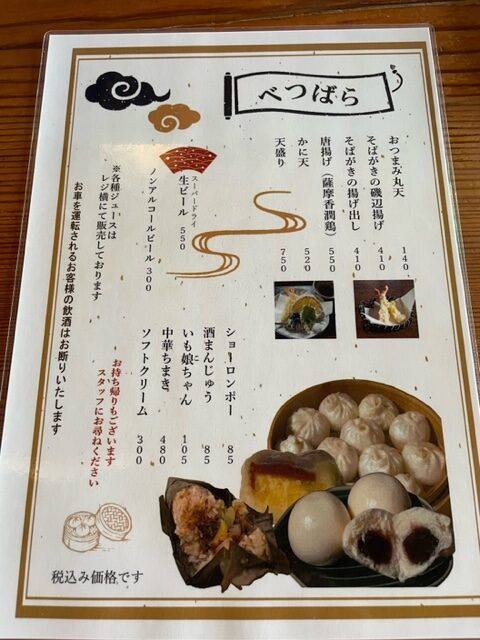 べつばら
おつまみ丸天 140
そばがきの磯辺揚げ 410
そばがきの揚げ出し 410
唐揚げ(薩摩香潤鶏) 550
かに天 520
天盛り 750
スーパードライ
生ビール 550
ノンアルコールビール 300
※各種ジュースは
レジ横にて販売しております
お車を運転されるお客様の飲酒はお断りいたします
ショーロンポー 85
酒まんじゅう 85
いも娘ちゃん 105
こ
中華ちまき 480
ソフトクリーム 300
お持ち帰りもございます
スタッフにお尋ねください
税込み価格です